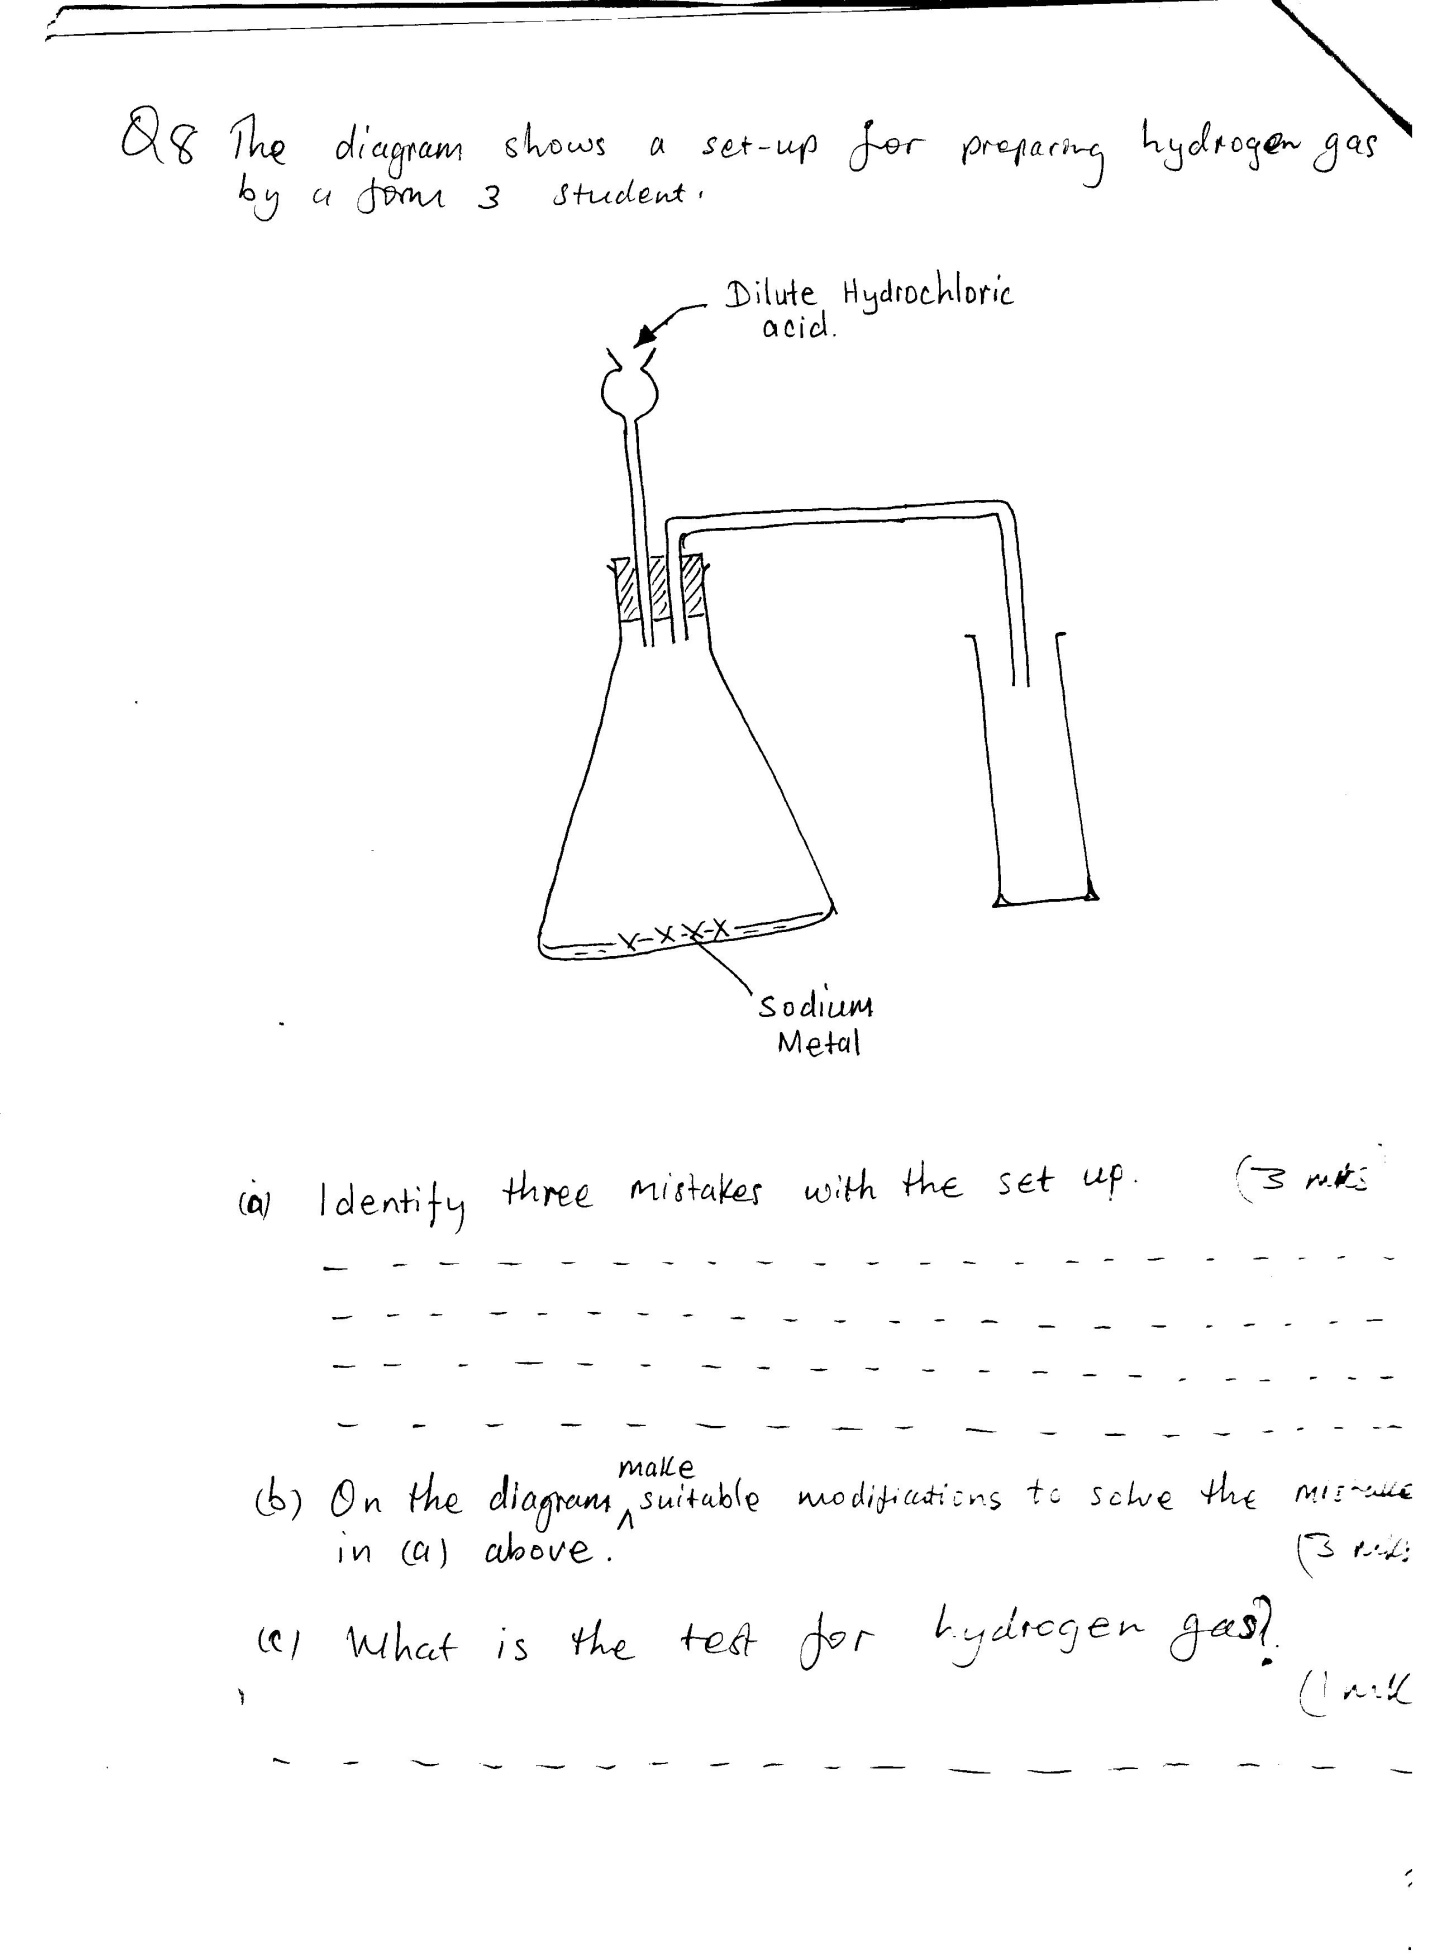 Q8 The diagram shows a set-up for preparing hydrogen gas
by a form 3 student.
Dilute Hydrochloric
acid.
Sodium
Metal
(a) Identify three mistakes with the set up. (3 mks
make
(b) On the diagram ^ suitable modifications to solve the mistake
in (a) above. (3 mks
(c) What is the test for hydrogen gas?
(1 mk